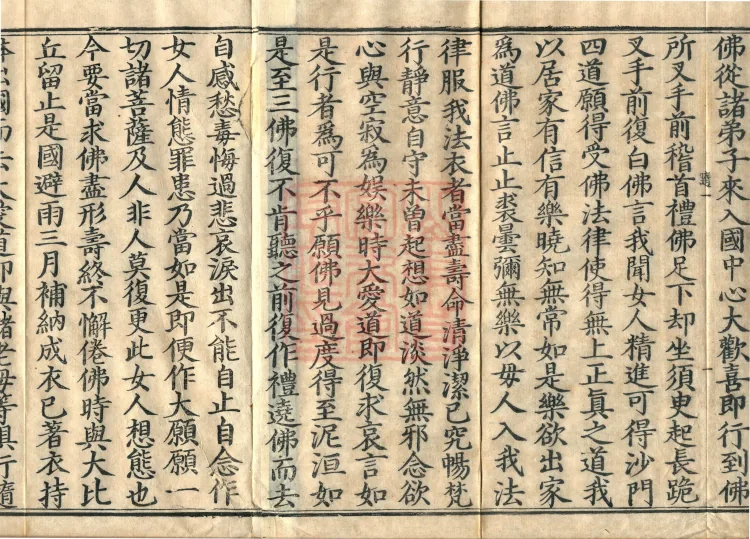 佛從諸弟子來入國中心大歡喜即行到佛
所叉手前稽首禮佛足下却坐須臾起長跪
叉手前復白佛言我聞女人精進可得沙門
四道願得受佛法律使得無上正真之道我
以居家有信有樂曉知無常如是樂欲出家
爲道佛言止止裘曇彌無樂以毋人入我法
律服我法衣者當盡壽命清淨潔已究暢梵
行靜意自守未曾起想如道淡然無邪念欲
心與空寂爲娛樂時大愛道即復求哀言如
是行者爲可不乎願佛見過度得至泥洹如
是至三佛復不肯聽之前復作禮遶佛而去
自感愁毒悔過悲哀淚出不能自止自念作
女人情態罪患乃當如是即便作大願願一
切諸菩薩及人非人莫復更此女人想態也
今要當求佛盡形壽終不懈倦佛時與大比
丘留止是國避雨三月補納成衣已著衣持
鉢出國而去大愛道即與諸老母等俱行隨